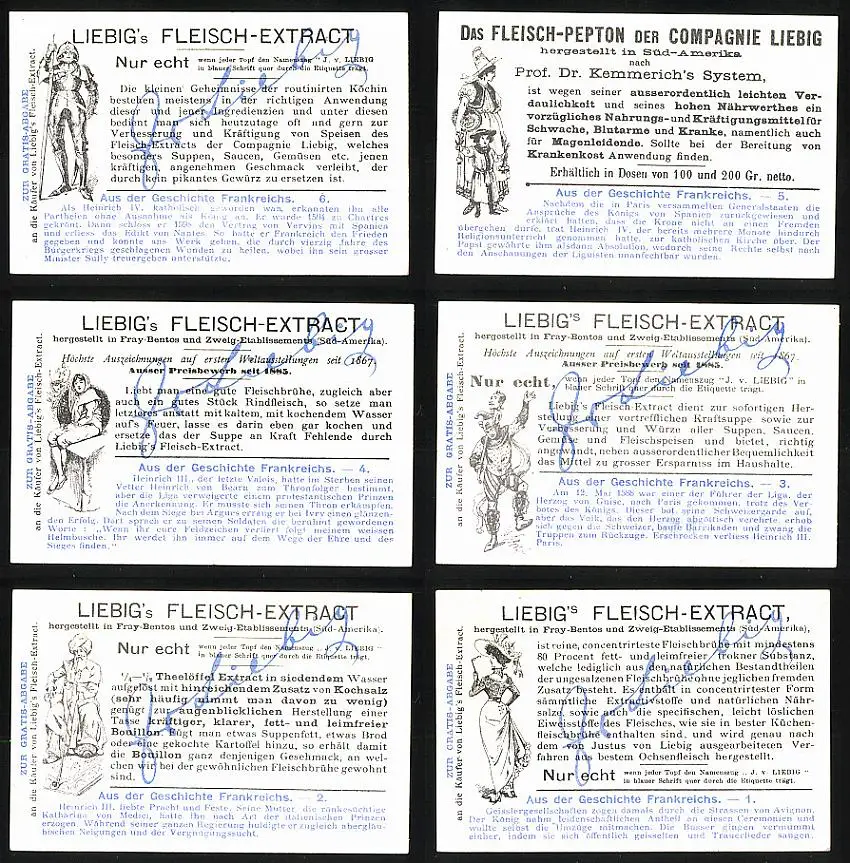 LIEBIG's FLEISCH-EXTRACT
Nur echt wenn jeder Topf den Namenszug "J. v. LIEBIG
in blauer Schrift quer durch die Etiquette trägt.
Die kleinen Geheimnisse der routinirten Köchin
bestehen meistens in der richtigen Anwendung
dieser und jener Ingredienzien und unter diesen
bedient man sich heutzutage oft und gern zur
Verbesserung und Kräftigung von Speisen des
Fleisch-Extracts der Compagnie Liebig, welches
besonders Suppen, Saucen, Gemüsen etc. jenen
kräftigen angenehmen Geschmack verleiht, der
durch kein pikantes Gewürz zu ersetzen ist.
ZUR GRATIS-ABGABE
an die Käufer von Liebig's Fleisch-Extract.
Aus der Geschichte Frankreichs. 6.
Als Heinrich IV. katholisch geworden war, erkannten ihn alle
Partheien ohne Ausnahme als König an. Er wurde 1594 zu Chartres
gekrönt. Dann schloss er 1598 den Vertrag von Vervins mit Spanien
und erliess das Edikt von Nantes. So hatte er Frankreich den Frieden
gegeben und konnte ans Werk gehen, die durch vierzig Jahre des
Bürgerkriegs geschlagenen Wunden zu heilen, wobei ihn sein grosser
Minister Sully treuergeben unterstützte.
DAS FLEISCH-PEPTON DER COMPAGNIE LIEBIG
hergestellt in Süd-Amerika
nach
Prof. Dr. Kemmerich's System,
ist wegen seiner ausserordentlich leichten Ver-
daulichkeit und seines hohen Nährwerthes ein
vorzügliches Nahrungs- und Kräftigungsmittel für
Schwache, Blutarme und Kranke, namentlich auch
für Magenleidende. Sollte bei der Bereitung von
Krankenkost Anwendung finden.
Erhältlich in Dosen von 100 und 200 Gr. netto.
Aus der Geschichte Frankreichs. — 5.
Nachdem die in Paris versammelten Generalstaaten die
Ansprüche des Königs von Spanien zurückgewiesen und
erklärt hatten, dass die Krone nicht an einen Fremden
übergehen dürfe, trat Heinrich IV. der bereits mehrere Monate hindurch
Religionsunterricht genommen hatte, zur katholischen Kirche über. Der
Papst gewährte ihm alsdann Absolution, wodurch seine Rechte selbst nach
den Anschauungen der Liguisten unanfechtbar wurden.
LIEBIG's FLEISCH-EXTRACT
hergestellt in Fray-Bentos und Zweig-Etablissements (Süd-Amerika).
Höchste Auszeichnungen auf ersten Weltausstellungen seit 1867.
Ausser Preisbewerb seit 1885.
Liebt man eine gute Fleischbrühe, zugleich aber
auch ein gutes Stück Rindfleisch, so setze man
letzteres anstatt mit kaltem, mit kochendem Wasser
auf's Feuer, lasse es darin eben gar kochen und
ersetze das der Suppe an Kraft Fehlende durch
Liebig's Fleisch-Extract.
ZUR GRATIS-ABGABE
an die Käufer von Liebig's Fleisch-Extract.
Aus der Geschichte Frankreichs. — 4.
Heinrich III., der letzte Valois, hatte im Sterben seinen
Vetter Heinrich von Bearn zum Thronfolger bestimmt,
aber die Liga verweigerte einem protestantischen Prinzen
die Anerkennung. Er musste sich seinen Thron erkämpfen.
Nach dem Siege bei Arques errang er bei Ivry einen glänzen-
den Erfolg. Dort sprach er zu seinen Soldaten die berühmt gewordenen
Worte: „Wenn ihr eure Feldzeichen verliert folgt meinem weissen
Helmbusche. Ihr werdet ihn immer auf dem Wege der Ehre und des
Sieges finden."
LIEBIG's FLEISCH-EXTRACT
hergestellt in Fray-Bentos und Zweig-Etablissements (Süd-Amerika).
Höchste Auszeichnungen auf ersten Weltausstellungen seit 1867.
Ausser Preisbewerb seit 1885.
Nur echt, wenn jeder Topf den Namenszug "J. v. LIEBIG" in
blauer Schrift quer durch die Etiquette trägt.
Liebig's Fleisch-Extract dient zur sofortigen Her-
stellung einer vortrefflichen Kraftsuppe sowie zur
Verbesserung und Würze aller Suppen, Saucen,
Gemüse und Fleischspeisen und bietet, richtig
angewandt, neben ausserordentlicher Bequemlichkeit
das Mittel zu grosser Ersparniss im Haushalte.
ZUR GRATIS-ABGABE
an die Käufer von Liebig's Fleisch-Extract.
Aus der Geschichte Frankreichs. — 3.
Am 12. Mai 1588 war einer der Führer der Liga, der
Herzog von Guise, nach Paris gekommen, trotz des Ver-
botes des Königs. Dieser bot seine Schweizergarde auf,
aber das Volk, das den Herzog abgöttisch verehrte, erhob
sich gegen die Schweizer, baute Barrikaden und zwang die
Truppen zum Rückzuge. Erschrocken verliess Heinrich III.
Paris.
LIEBIG's FLEISCH-EXTRACT
hergestellt in Fray-Bentos und Zweig-Etablissements (Süd-Amerika).
Nur echt wenn jeder Topf den Namenszug „J. v. LIEBIG"
in blauer Schrift quer durch die Etiquette trägt.
¼—½ Theelöffel Extract in siedendem Wasser
aufgelöst mit hinreichendem Zusatz von Kochsalz
(sehr häufig nimmt man davon zu wenig)
genügt zur augenblicklichen Herstellung einer
Tasse kräftiger, klarer, fett- und leimfreier
Bouillon. Fügt man etwas Suppenfett, etwas Brod
oder eine gekochte Kartoffel hinzu, so erhält damit
die Bouillon ganz denjenigen Geschmack, an wel-
chen wir bei der gewöhnlichen Fleischbrühe gewohnt
sind.
ZUR GRATIS-ABGABE
an die Käufer von Liebig's Fleisch-Extract.
Aus der Geschichte Frankreichs. — 2.
Heinrich III. liebte Pracht und Feste. Seine Mutter, die ränkesüchtige
Katharina von Medici, hatte ihn nach Art der italienischen Prinzen
erzogen. Während seiner ganzen Regierung huldigte er zugleich abergläu-
bischen Neigungen und der Vergnügungssucht.
LIEBIG's FLEISCH-EXTRACT,
hergestellt in Fray-Bentos und Zweig-Etablissements (Süd-Amerika),
ist reine, concentrirteste Fleischbrühe mit mindestens
80 Procent fett- und leimfreier, trokner Substanz,
welche lediglich aus den natürlichen Bestandtheilen
der ungesalzenen Fleischbrühe ohne jeglichen fremden
Zusatz besteht. Es enthält in concentrirtester Form
sämmtliche Extractivstoffe und natürlichen Nähr-
salze, sowie auch die specifischen, leicht löslichen
Eiweisstoffe des Fleisches, wie sie in bester Küchen-
fleischbrühe enthalten sind, und wird genau nach
dem von Justus von Liebig ausgearbeiteten Ver-
fahren aus bestem Ochsenfleisch hergestellt.
Nur echt wenn jeder Topf den Namenszug „J. v. LIEBIG"
in blauer Schrift quer durch die Etiquette trägt.
ZUR GRATIS-ABGABE
an die Käufer von Liebig's Fleisch-Extract.
Aus der Geschichte Frankreichs. — 1.
Geisslergesellschaften zogen damals durch die Strassen von Avignon.
Der König nahm leidenschaftlichen Antheil an diesen Ceremonien und
wollte selbst die Umzüge mitmachen. Die Büsser gingen vermummt
einher, indem sie sich öffentlich geisselten und Trauerlieder sangen.